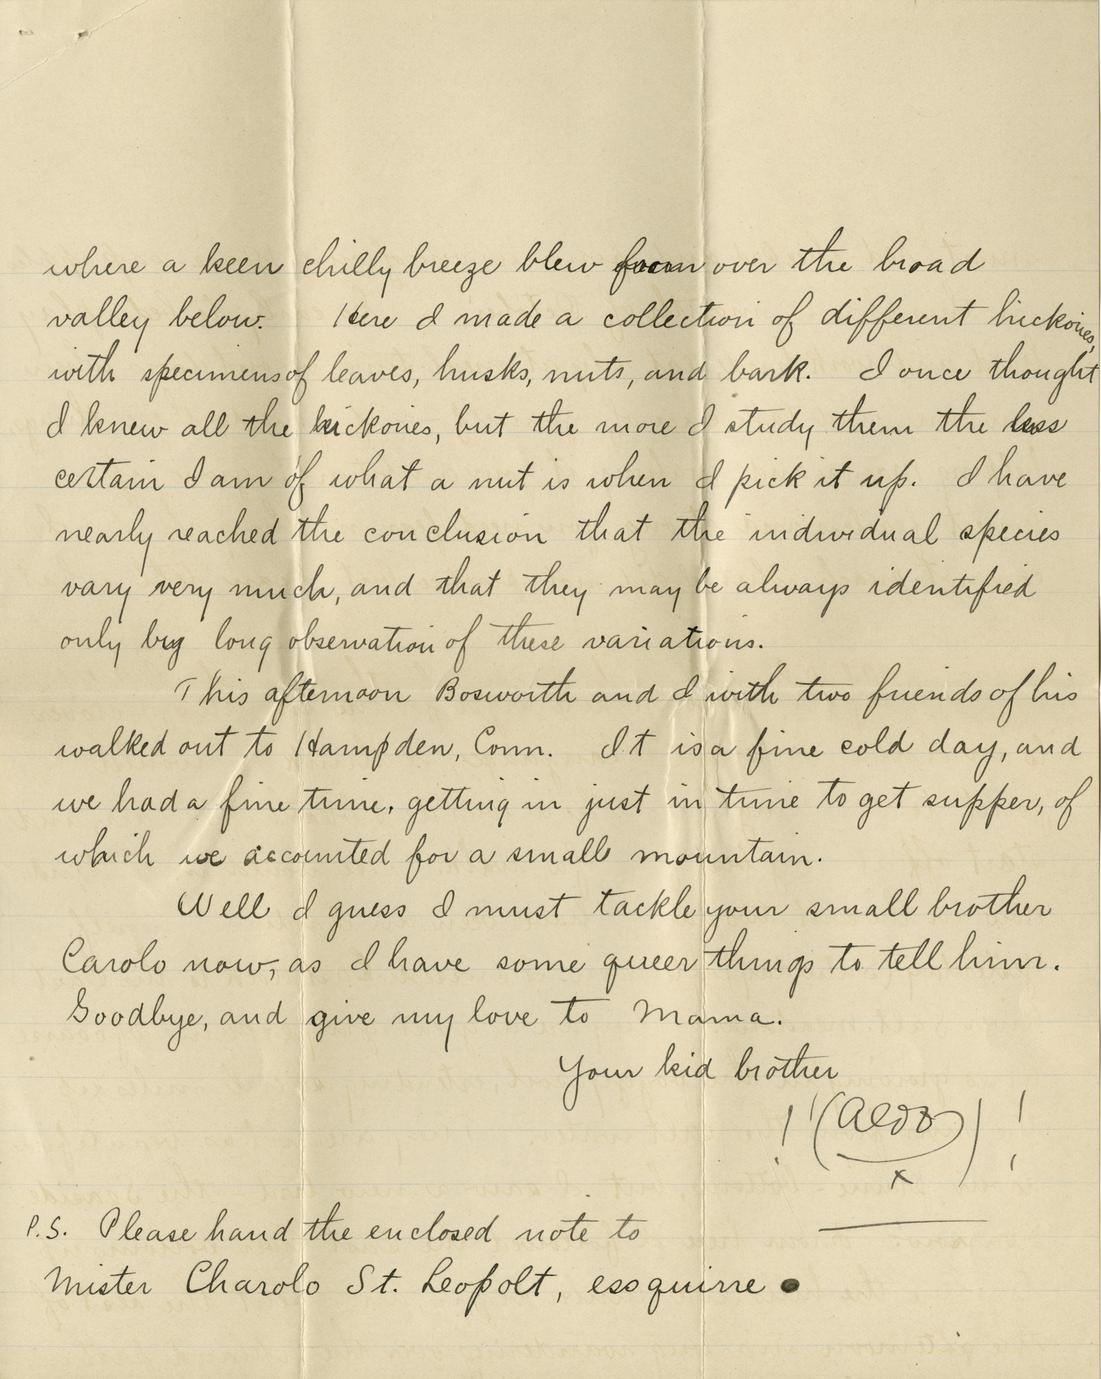 where a keen chilly breeze blew from over the broad
valley below. Here I made a collection of different hickories,
with specimens of leaves, husks, nuts, and bark. I once thought
I knew all the hickories, but the more I study them the less
certain I am of what a nut is when I pick it up. I have
nearly reached the conclusion that the individual species
vary very much, and that they may be always identified
only by long observation of these variations.
This afternoon Bosworth and I with two friends of his
walked out to Hampden, Conn. It is a fine cold day, and
we had a fine time, getting in just in time to get supper, of
which we accounted for a small mountain.
Well I guess I must tackle your small brother
Carolo now, as I have some queer things to tell him.
Goodbye, and give my love to Mama.
Your kid brother
!!(Aldo)!!
x
P.S. Please hand the enclosed note to
Mister Charolo St. Leopolt, essquirre.